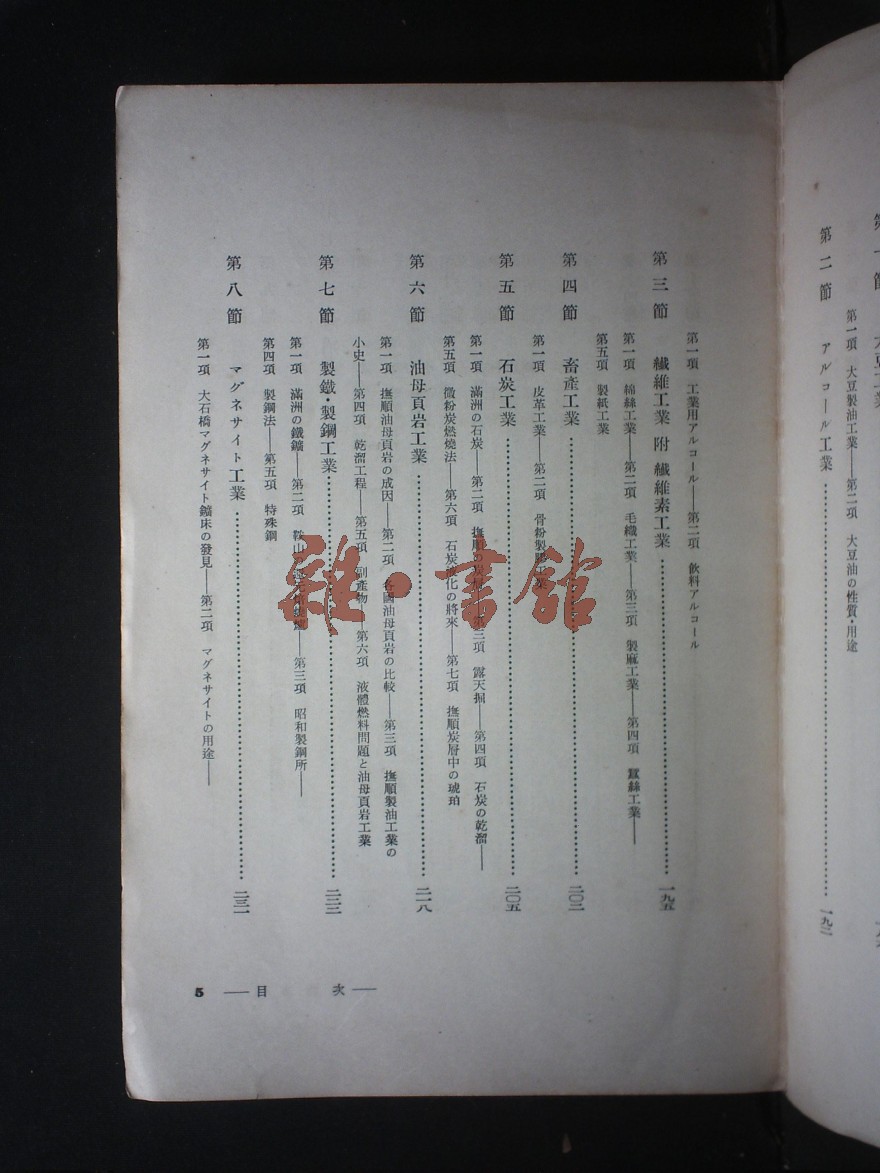 第二節 アルコール工業 一九二
第一項 大豆製油工業——第二項 大豆油の性質・用途
第一項 工業用アルコール——第二項 飮料アルコール
第三節 纎維工業 附 纎維素工業 一九五
第一項 綿絲工業——第二項 毛織工業——第三項 製麻工業——第四項 蠶絲工業——
第五項 製紙工業
第四節 畜產工業 二〇二
第一項 皮革工業——第二項 骨粉製膠工業
第五節 石炭工業 二〇五
第一項 滿洲の石炭——第二項 撫順の炭層——第三項 露天掘——第四項 石炭の乾溜——
第五項 微粉炭燃燒法——第六項 石炭液化の將來——第七項 撫順炭層中の琥珀
第六節 油母頁岩工業 二一八
第一項 撫順油母頁岩の成因——第二項 各國油母頁岩の比較——第三項 撫順製油工業の
小史——第四項 乾溜工程——第五項 副產物——第六項 液體燃料問題と油母頁岩工業
第七節 製鐵・製鋼工業 二二二
第一項 滿洲の鐵鑛——第二項 鞍山の——第三項 昭和製鋼所——
第四項 製鋼法——第五項 特殊鋼
第八節 マグネサイト工業 二三一
第一項 大石橋マグネサイト鑛床の發見——第二項 マグネサイトの用途——
5 —— 目 次 ——
雜·書館